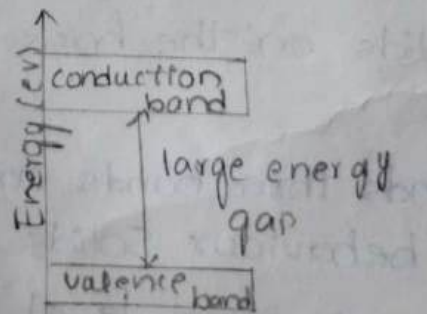 Energy (ev)
conduction
band
large energy
gap
valence band